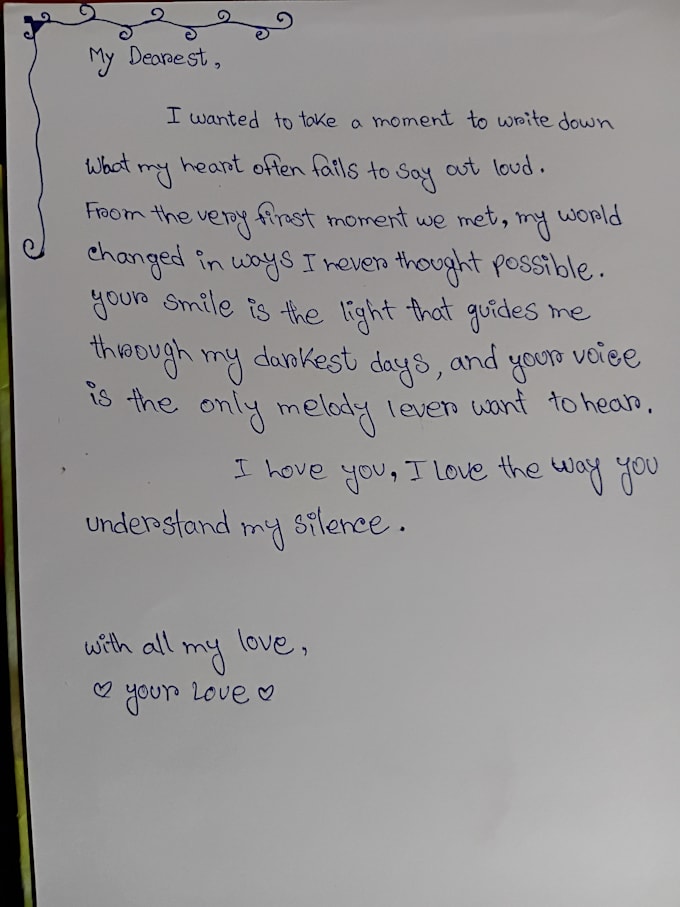 My Dearest,
I wanted to take a moment to write down
what my heart often fails to say out loud.
From the very first moment we met, my world
changed in ways I never thought possible.
your smile is the light that guides me
through my darkest days, and your voice
is the only melody I ever want to hear.
I love you, I Love the way you
understand my silence.
with all my love,
♡ your Love ♡